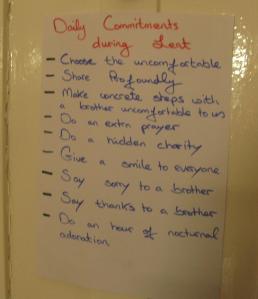 Daily Commitments
during Lent
- Choose the uncomfortable
- Share Profoundly
- Make concrete steps with
a brother uncomfortable to us
- Do an extra prayer
- Do a hidden charity
- Give a smile to everyone
- Say sorry to a brother
- Say thanks to a brother
- Do an hour of nocturnal
adoration